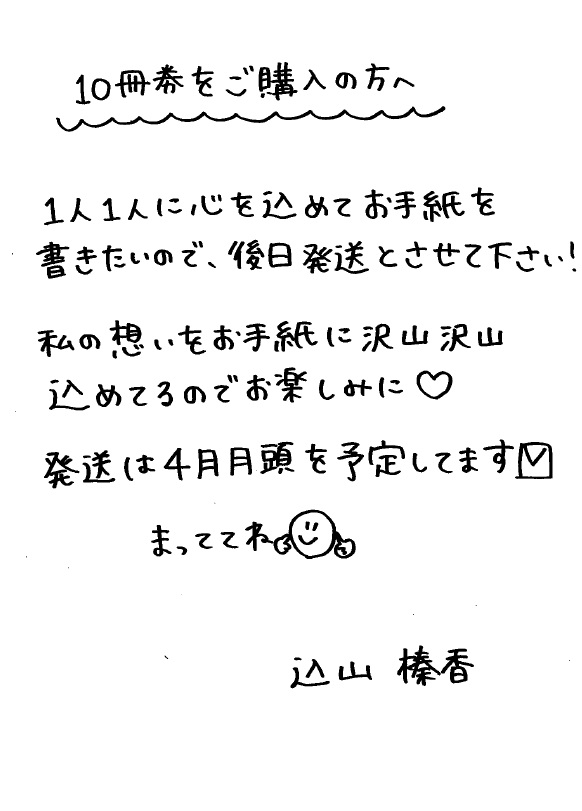 10冊券をご購入の方へ
1人1人に心を込めてお手紙を
書きたいので、後日発送とさせて下さい!
私の想いをお手紙に沢山沢山
込めてるのでお楽しみに♡
発送は4月月頭を予定してます
まっててね
込山 榛香